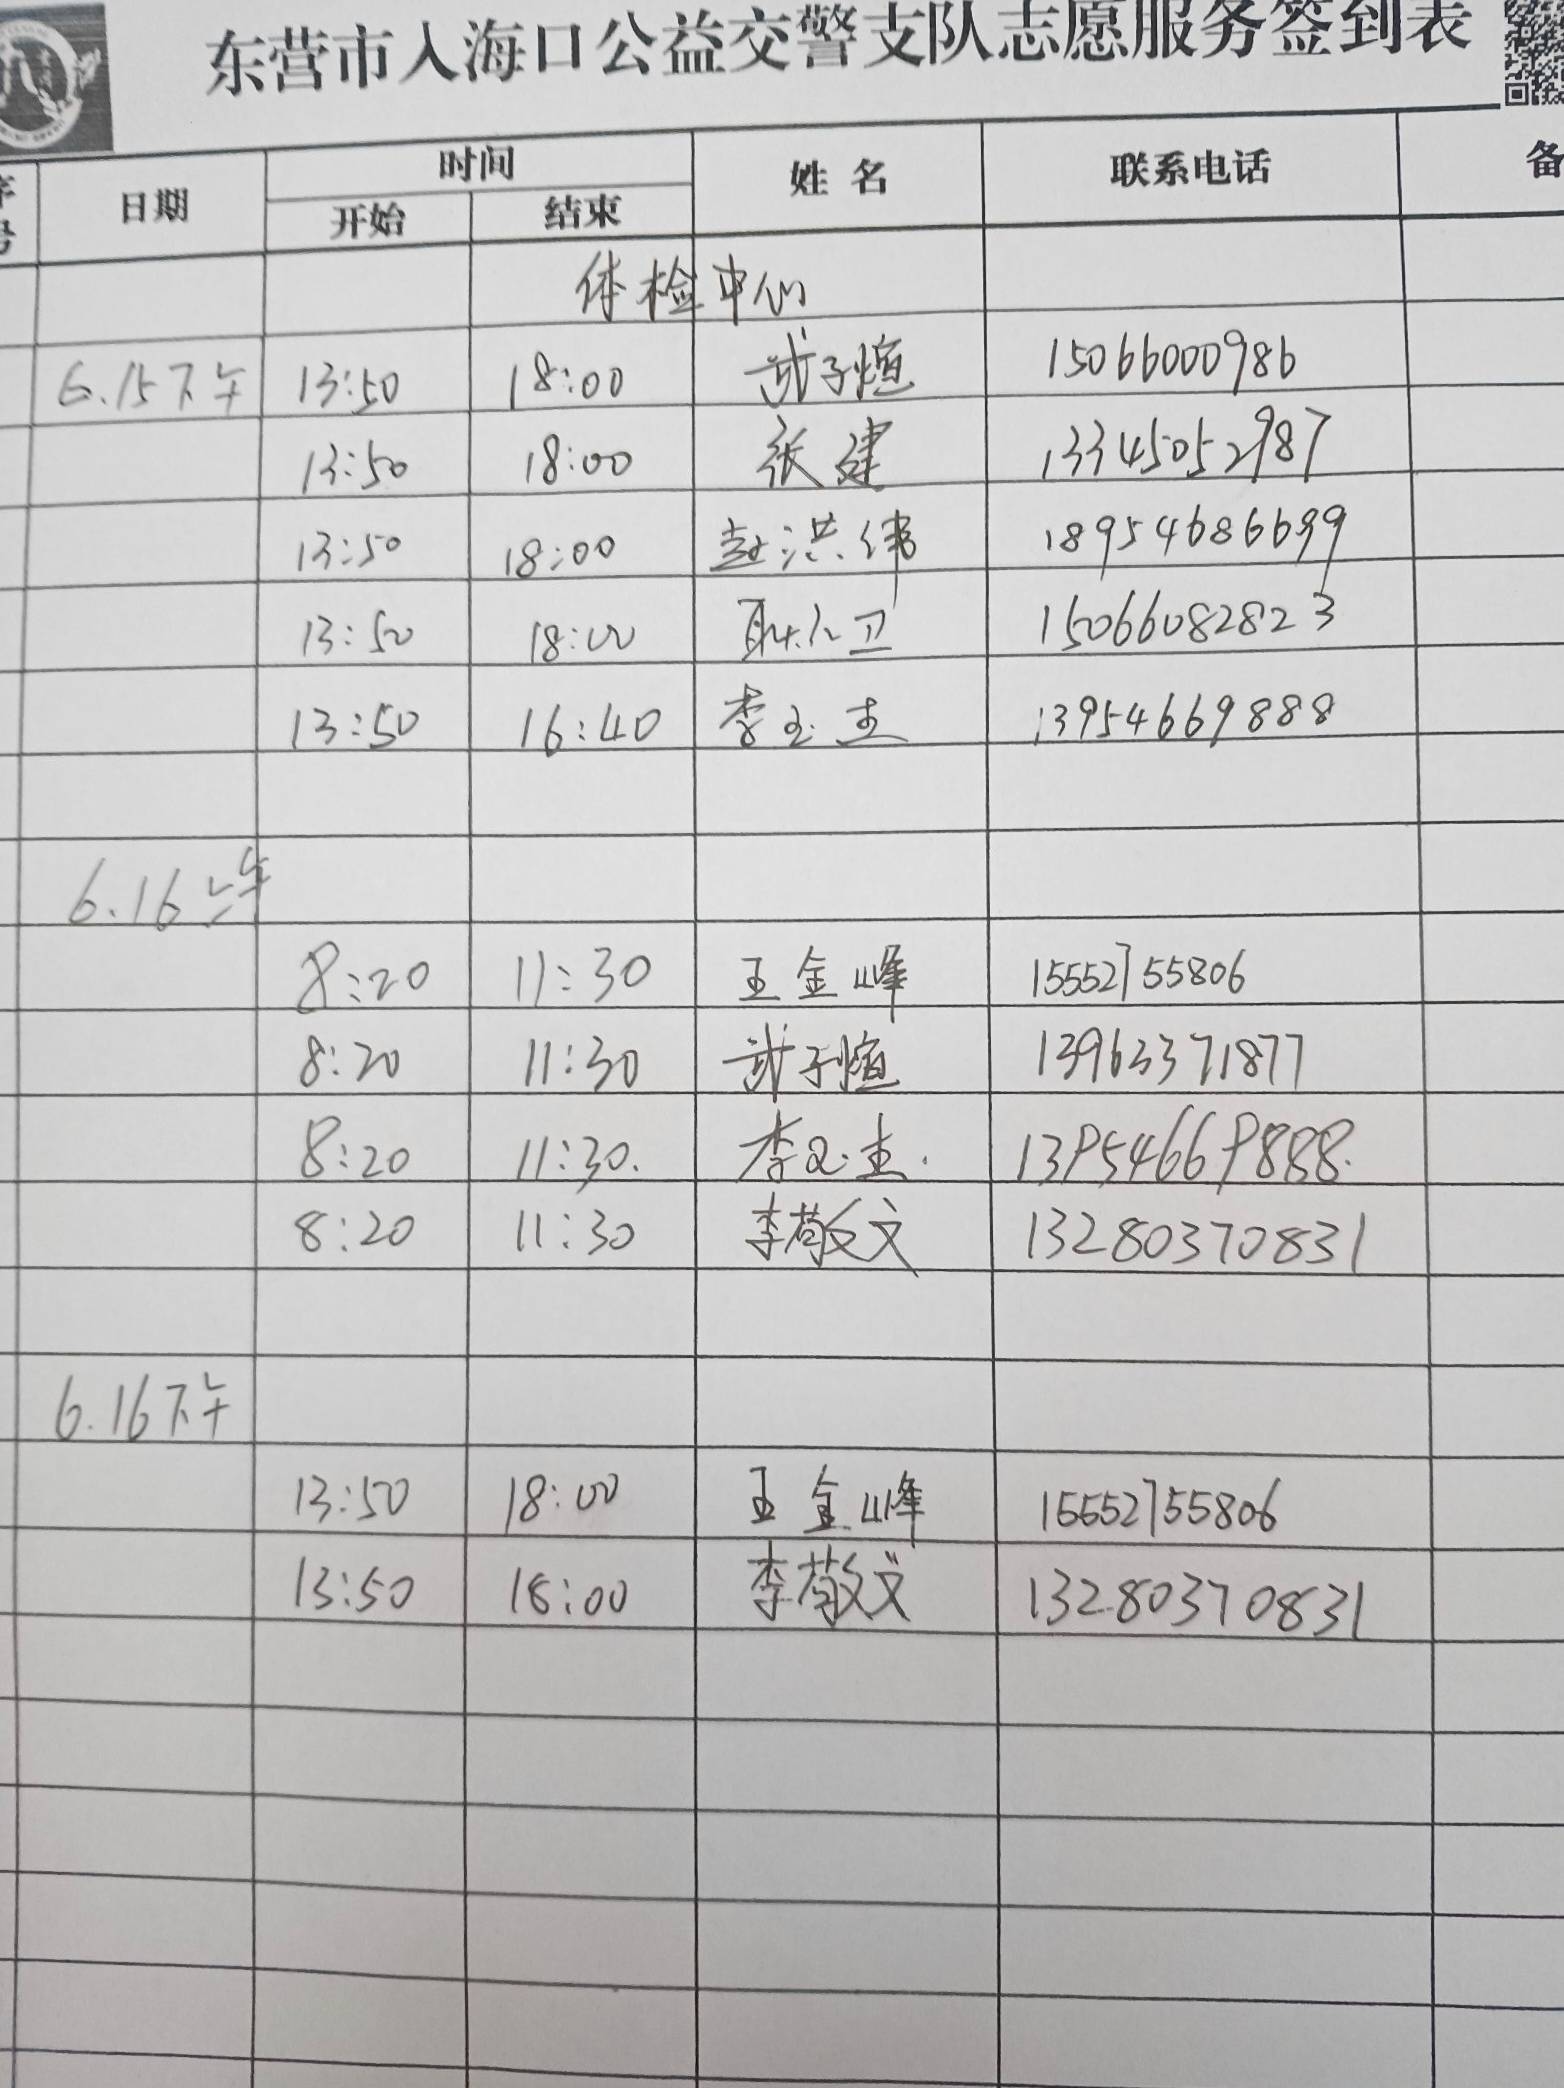 东营市入海口公益交警支队志愿服务签到表
日期 时间 姓名 联系电话 备
开始 结束
体检中心
6.15下午 13:50 18:00 武子煊 15066000986
13:50 18:00 张建 13345052987
13:50 18:00 赵洪伟 18954686699
13:50 18:00 15066082823
13:50 16:40 李玉杰 13954669888
6.16上午
8:20 11:30 王金峰 15552755806
8:20 11:30 武子煊 13963371877
8:20 11:30. 李玉杰. 13954669888.
8:20 11:30 李敬文 13280370831
6.16下午
13:50 18:00 王金峰 15552755806
13:50 18:00 李敬文 13280370831